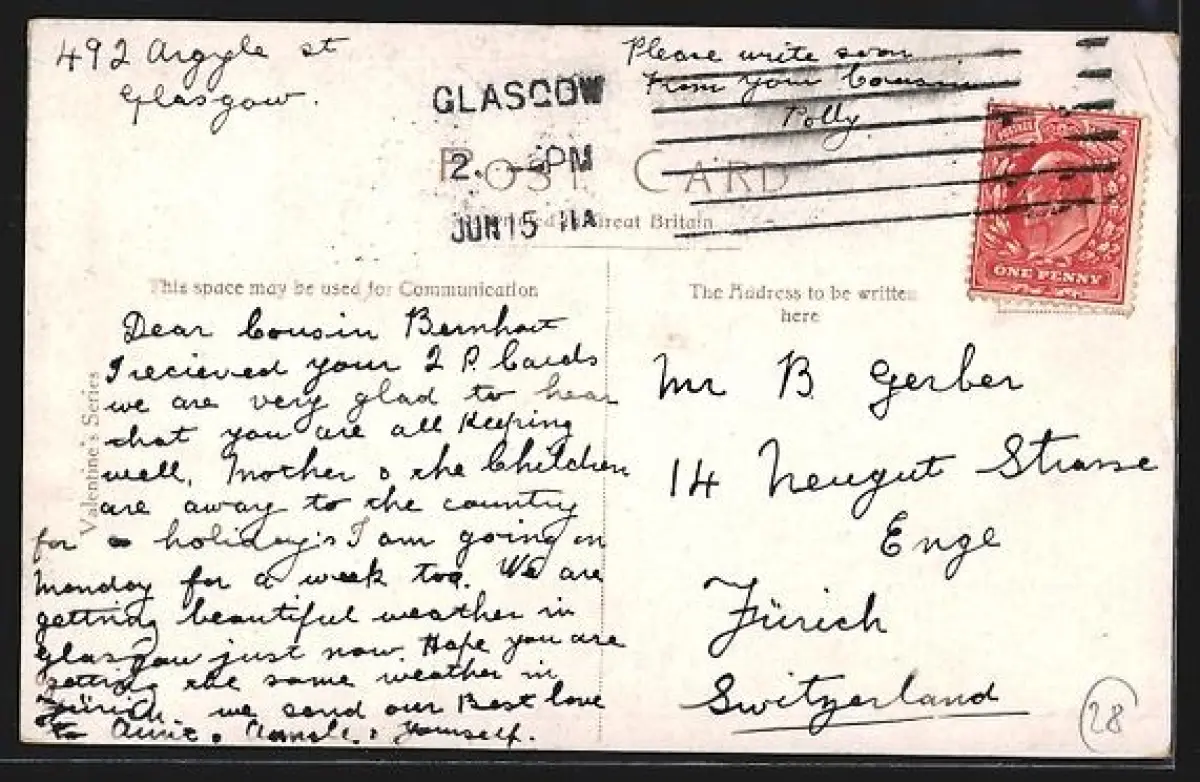 492 Argyle st
Glasgow.
Please write soon
From your Cousin
Polly
GLASGOW
2. PM
JUN 15 11A
POST CARD
Great Britain
This space may be used for Communication
The Address to be written
here
Valentine's Series
Dear Cousin Bernhart
I recieved your 2 P. Cards
we are very glad to hear
that you are all keeping
well. Mother & the Children
are away to the country
for holiday's I am going on
Monday for a week too. We are
getting beautiful weather in
Glasgow just now. Hope you are
getting the same weather in
Zürich. we send our Best love
to Aunt, & yourself.
Mr B. Gerber
14 Neugut Strasse
Enge
Zürich
Switzerland
ONE PENNY
28